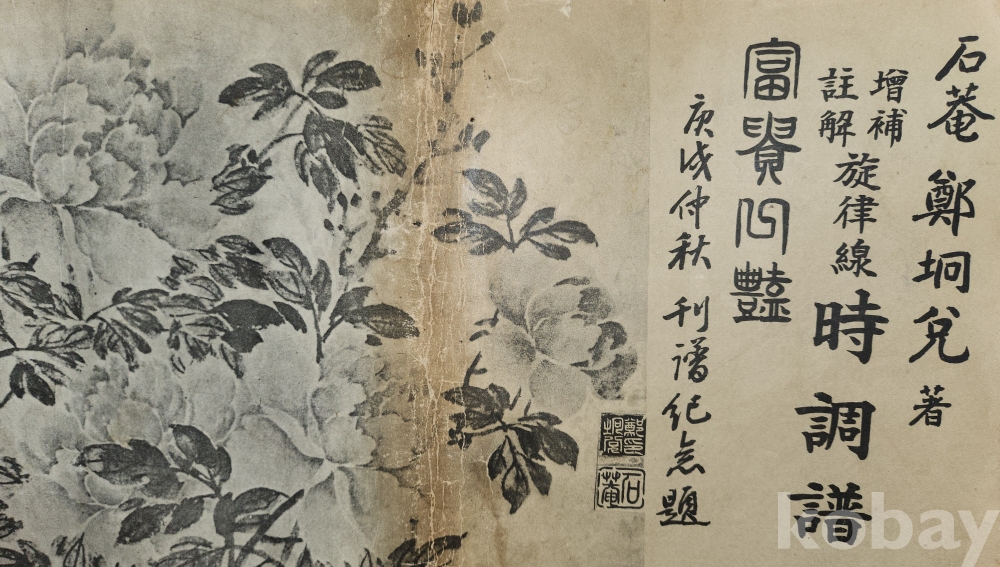 石菴 鄭坰兌 著
增補
註解
旋律線
時調譜
富貴已豔
庚戌仲秋 刊譜紀念題
鄭坰兌印
石菴
kobay